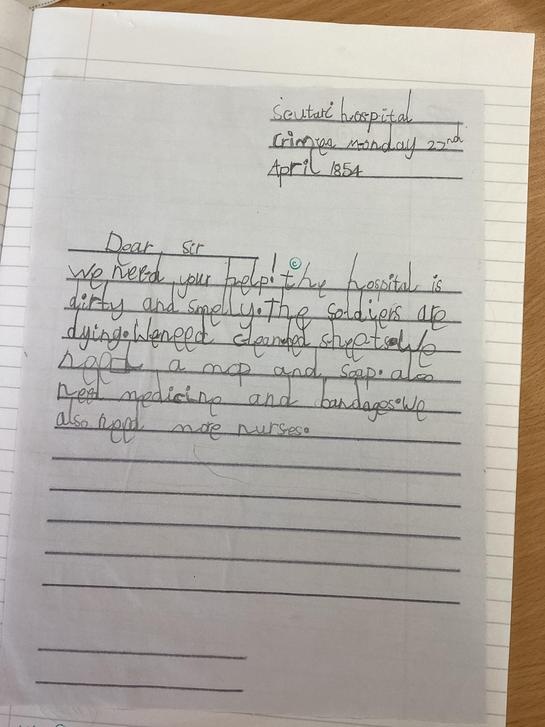 Scutari hospital
Crimea monday 22nd
April 1854
Dear sir
We need your help! the hospital is
dirty and smelly. The soldiers are
dying. We need cleaned sheets. We
need a mop and soap. also
need medicine and bandages. We
also need more nurses.